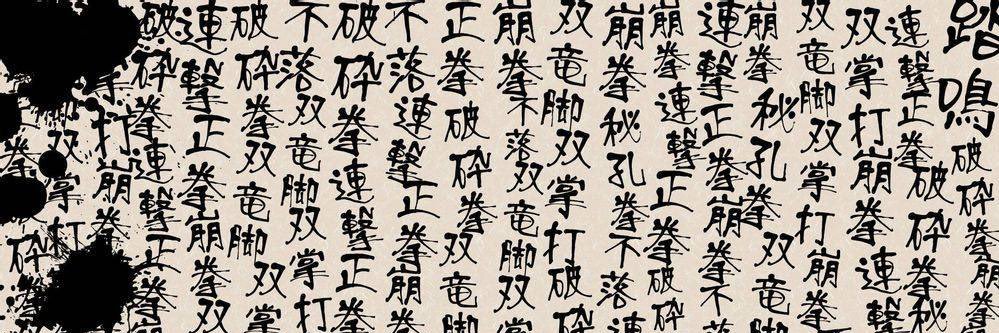 踏鳴破砕崩拳
連撃正拳破砕拳秘
双掌打崩拳連撃
双竜脚双掌打崩拳
崩拳秘孔拳双竜脚
連撃正拳崩拳不
崩拳連撃正拳破砕
崩拳秘孔拳不落連
双竜脚双掌打破砕
崩拳不落双竜脚双
正拳破砕拳双竜脚
不落連撃正拳崩拳
破砕拳連撃正拳
不落双竜脚双掌打
破砕拳双竜脚双掌
連撃正拳崩拳双
破砕拳連撃正拳
掌打崩拳
双掌打
拳砕拳